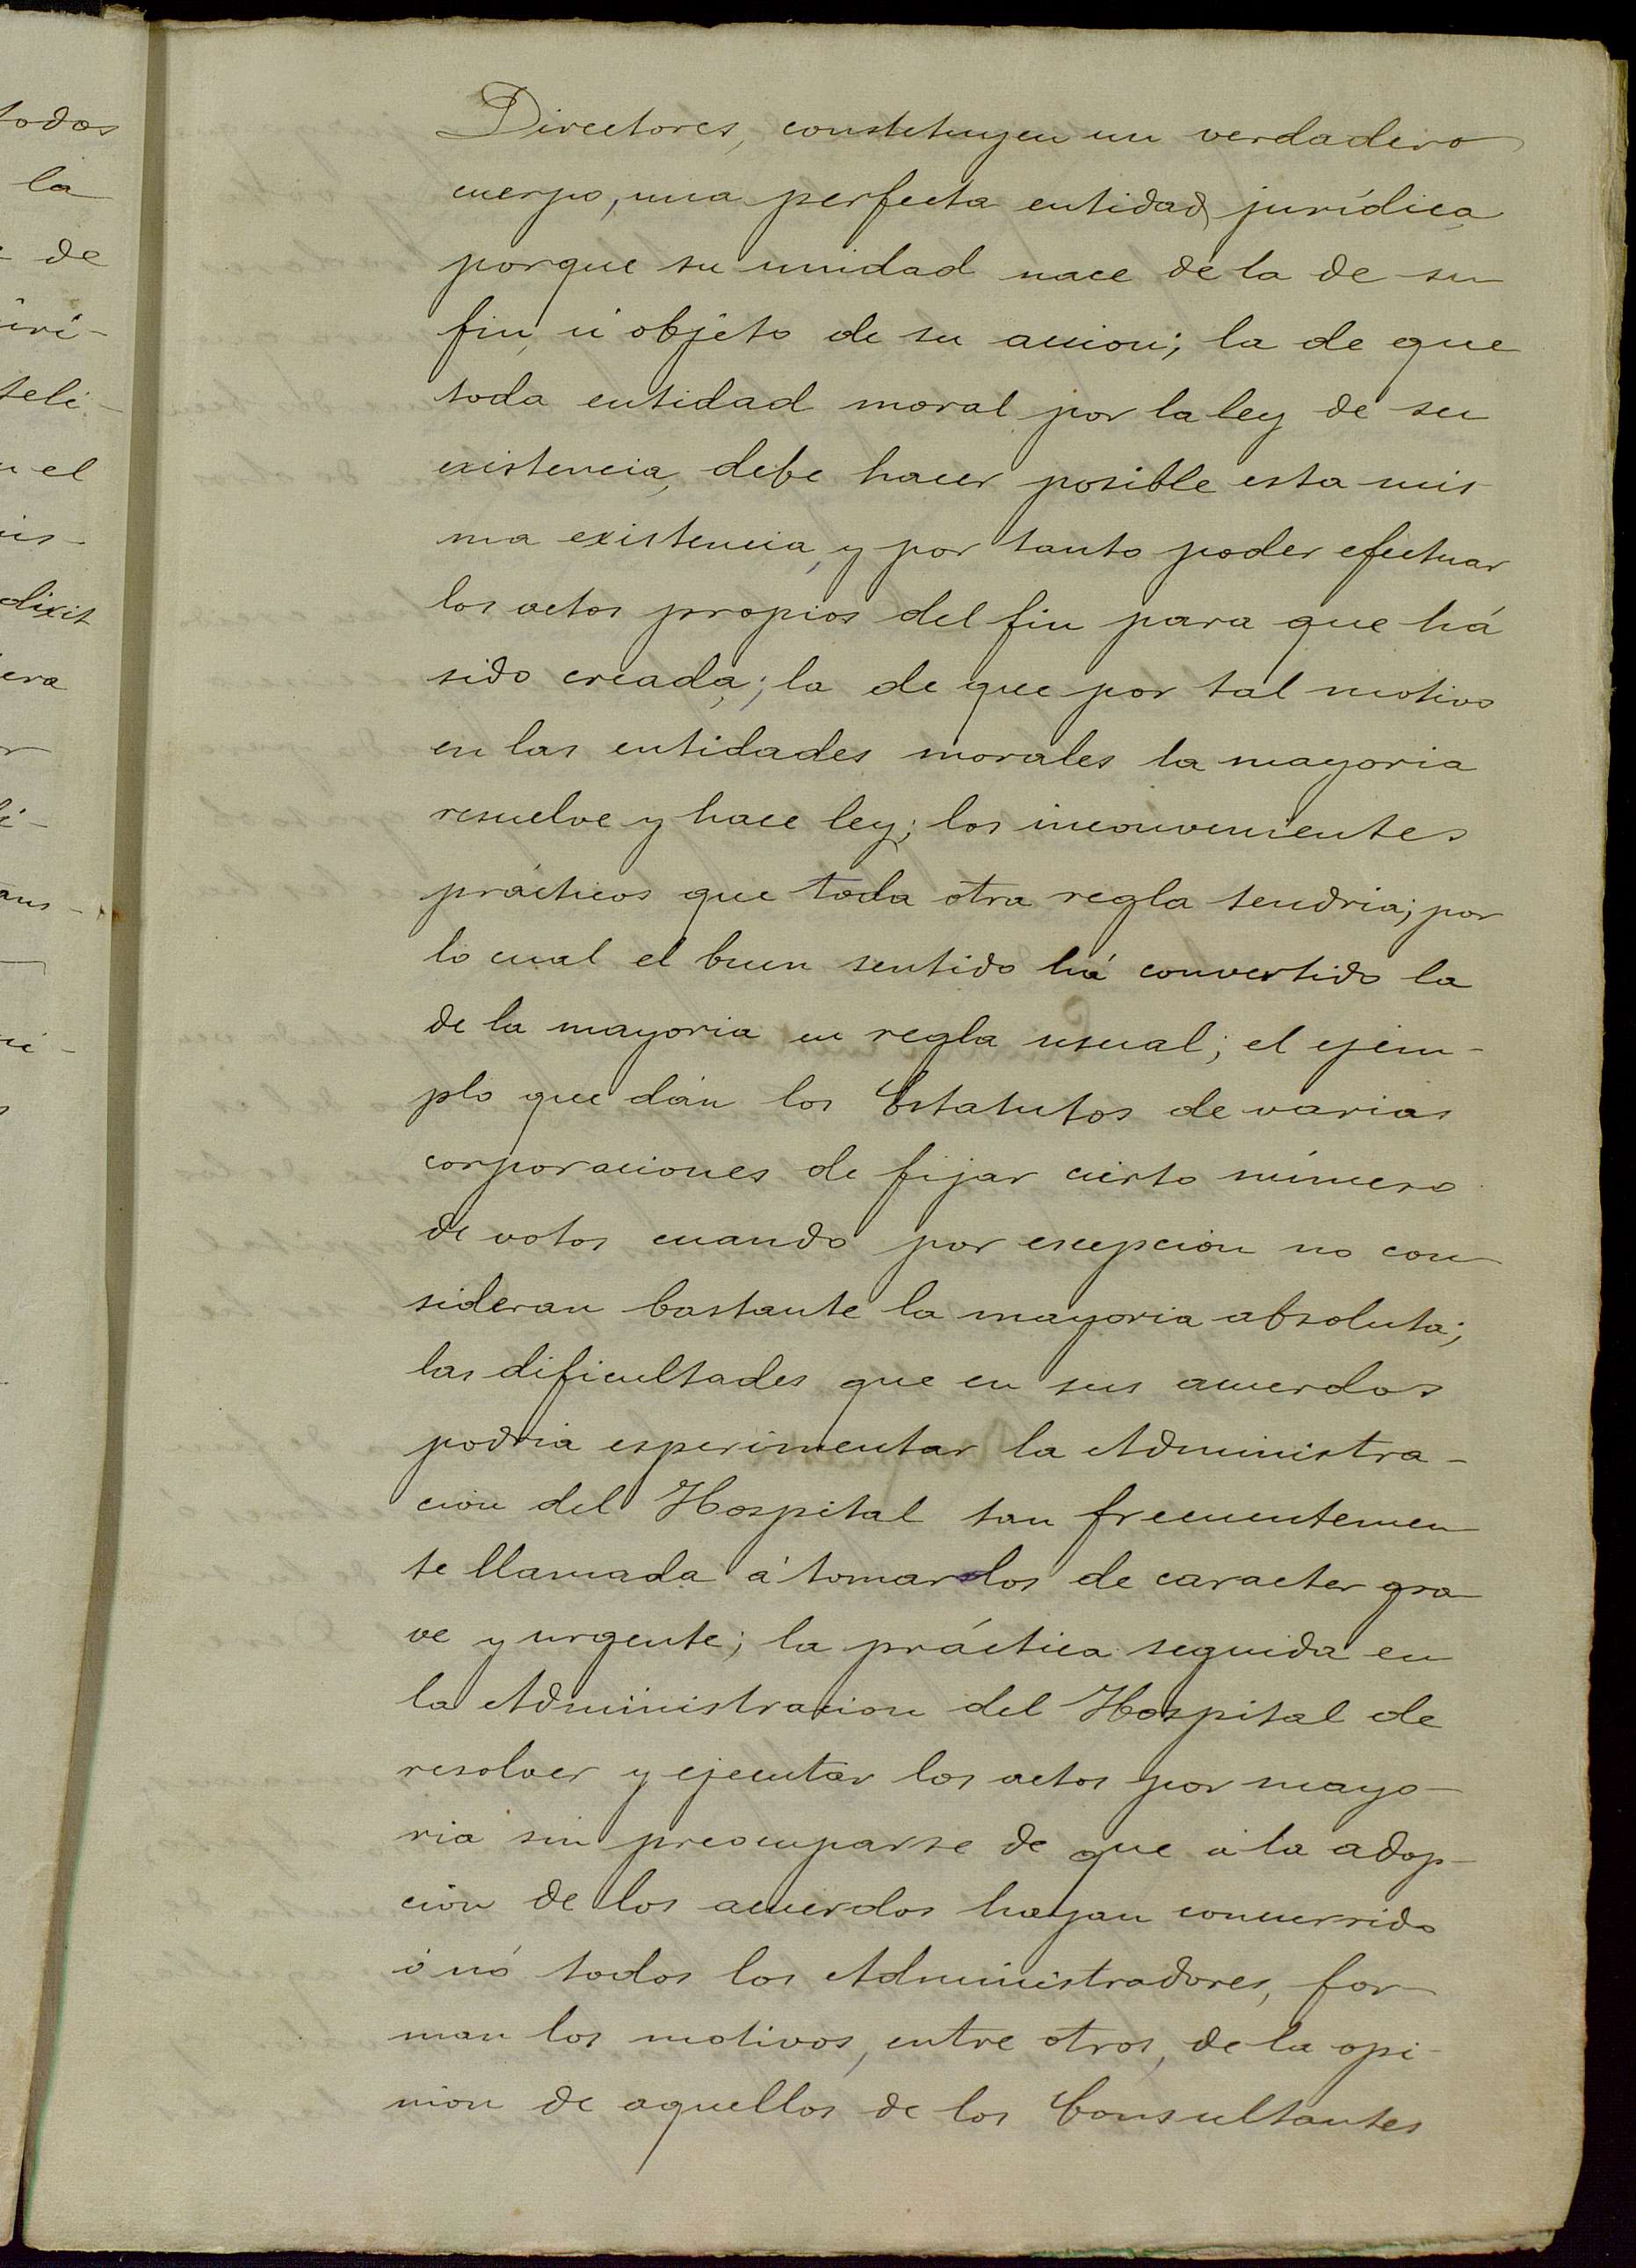 todos
la
de
iri-
teli-
n el
is-
dixit
era
r
i-
ans-
ni-
s
Directores, constituyen un verdadero
cuerpo, una perfecta entidad, jurídica,
porque su unidad nace de la de su
fin, ú objeto de su accion; la de que
toda entidad moral por la ley de su
existencia, debe hacer posible esta mis
ma existencia, y por tanto poder efectuar
los actos propios del fin para que há
sido creada; la de que por tal motivo
en las entidades morales la mayoria
resuelve y hace ley; los inconvenientes
prácticos que toda otra regla tendria; por
lo cual el buen sentido há convertido la
de la mayoria en regla usual; el ejem-
plo que dán los Estatutos de varias
corporaciones de fijar cierto número
de votos cuando por escepcion no con
sideran bastante la mayoria absoluta;
las dificultades que en sus acuerdos
podria esperimentar la Administra-
cion del Hospital tan frecuentemen
te llamada á tomarlos de caracter gra
ve y urgente; la práctica seguida en
la Administracion del Hospital de
resolver y ejecutar los actos por mayo-
ria sin preocuparse de que á la adop-
cion de los acuerdos hayan concurrido
ó nó todos los Administradores, for
man los motivos, entre otros, de la opi-
nion de aquellos de los Consultantes